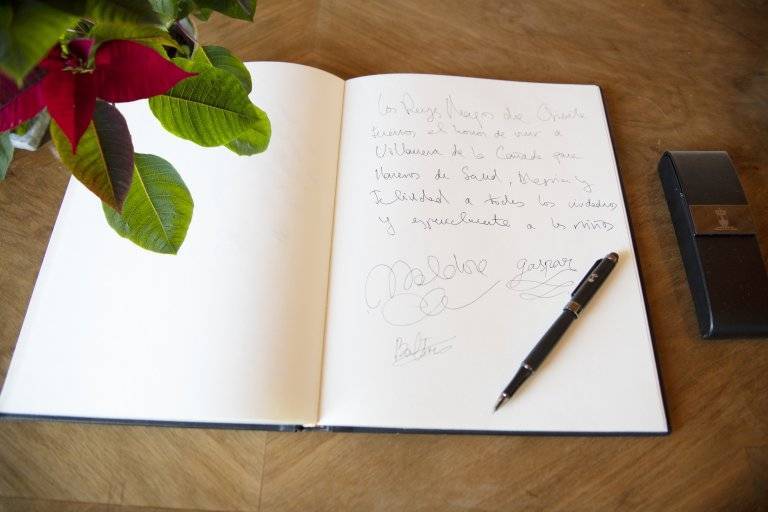 Los Reyes Magos de Oriente
tuvimos el honor de venir a
Villanueva de la Cañada para
llenaros de Salud, Alegria y
Felicidad a todos los ciudadanos
y especialmente a los niños
Melchor gaspar
Baltasar